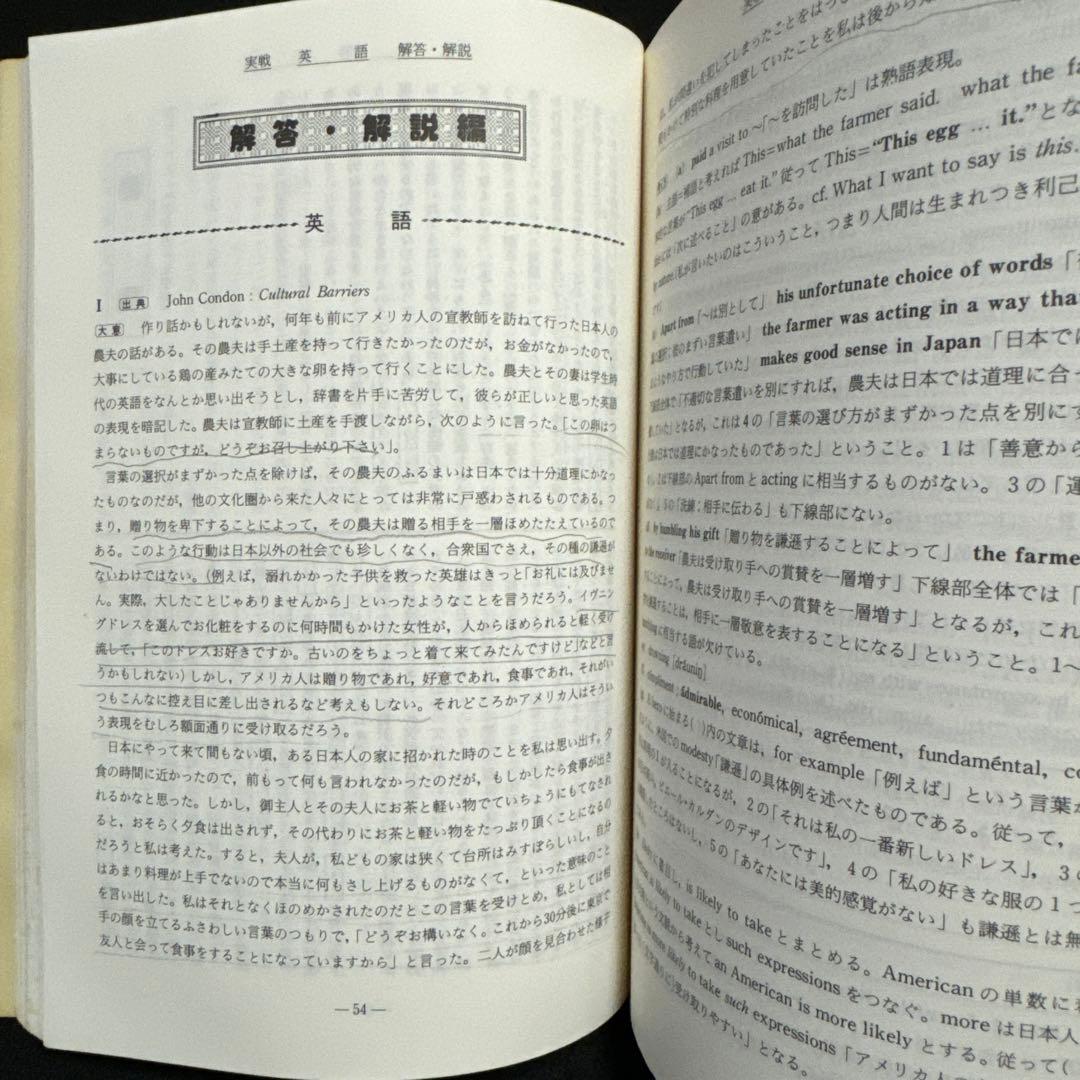 実戦 英 語 解答・解説
解答・解説編
英 語
I 出典 John Condon : Cultural Barriers
大意 作り話かもしれないが，何年も前にアメリカ人の宣教師を訪ねて行った日本人の
農夫の話がある。その農夫は手土産を持って行きたかったのだが，お金がなかったので，
大事にしている鶏の産みたての大きな卵を持って行くことにした。農夫とその妻は学生時
代の英語をなんとか思い出そうとし，辞書を片手に苦労して，彼らが正しいと思った英語
の表現を暗記した。農夫は宣教師に土産を手渡しながら，次のように言った。「この卵はつ
まらないものですが，どうぞお召し上がり下さい」。
言葉の選択がまずかった点を除けば，その農夫のふるまいは日本では十分道理にかなっ
たものなのだが，他の文化圏から来た人々にとっては非常に戸惑わされるものである。つ
まり，贈り物を卑下することによって，その農夫は贈る相手を一層ほめたたえているので
ある。このような行動は日本以外の社会でも珍しくなく，合衆国でさえ，その種の謙遜が
ないわけではない。(例えば，溺れかかった子供を救った英雄はきっと「お礼には及びませ
ん。実際，大したことじゃありませんから」といったようなことを言うだろう。イヴニン
グドレスを選んでお化粧をするのに何時間もかけた女性が，人からほめられると軽く受け
流して，「このドレスお好きですか。古いのをちょっと着て来てみたんですけど」などと言
うかもしれない) しかし，アメリカ人は贈り物であれ，好意であれ，食事であれ，それがい
つもこんなに控え目に差し出されるなど考えもしない。それどころかアメリカ人はそうい
う表現をむしろ額面通りに受け取るだろう。
日本にやって来て間もない頃，ある日本人の家に招かれた時のことを私は思い出す。夕
食の時間に近かったので，前もって何も言われなかったのだが，もしかしたら食事が出さ
れるかなと思った。しかし，御主人とその夫人にお茶と軽い物でていちょうにもてなされ
ると，おそらく夕食は出されず，その代わりにお茶と軽い物をたっぷり頂くことになるの
だろうと私は考えた。すると，夫人が，私どもの家は狭くて台所はみすぼらしいし，自分
はあまり料理が上手でないので本当に何もさし上げるものがなくて，といった意味のこと
を言い出した。私はそれとなくほのめかされたのだとこの言葉を受けとめ，私としては相
手の顔を立てるふさわしい言葉のつもりで，「どうぞお構いなく。これから30分後に東京で
友人と会って食事をすることになっていますから」と言った。二人が顔を見合わせた様子
— 54 —
paid a visit to ～「～を訪問した」は熟語表現。
what the farmer said. what the fa
"This egg … eat it."従って This="This egg … it."とな
「次に述べること」の意がある。cf. What I want to say is this.
(私が言いたいのはこういうこと，つまり人間は生まれつき利己
Apart from「～は別として」 his unfortunate choice of words
the farmer was acting in a way tha
makes good sense in Japan「日本では
「不適切な言葉遣いを別にすれば，農夫は日本では道理に合
となるが，これは4の「言葉の選び方がまずかった点を別にす
日本では道理にかなったものであった」ということ。1は「善意から
下線部のApart fromとactingに相当するものがない。3の「運
5の「洗練；相手に伝わる」も下線部にない。
by humbling his gift「贈り物を謙遜することによって」 the farme
the receiver「農夫は受け取り手への賞賛を一層増す」下線部全体では「
ことによって，農夫は受け取り手への賞賛を一層増す」となるが，これ
することは，相手に一層敬意を表することになる」ということ。1～
に相当する語が欠けている。
drowning [dráuniŋ]
compliment；ádmirable, económical, agréement, fundaméntal, co
A heroに始まる( )内の文章は，for example「例えば」という言葉が
modesty「謙遜」の具体例を述べたものである。従って，
ることになるが，2の「それは私の一番新しいドレス」，3の
ピエール・カルダンのデザインです」，4の「私の好きな服の1つ
5の「あなたには美的感覚がない」も謙遜とは無
is likely to takeとまとめる。Americanの単数に
likely to takeとし such expressionsをつなぐ。moreは日本人
から考えて an American is more likelyとする。従って(
more likely to take such expressions「アメリカ人の
受け取りやすい」となる。